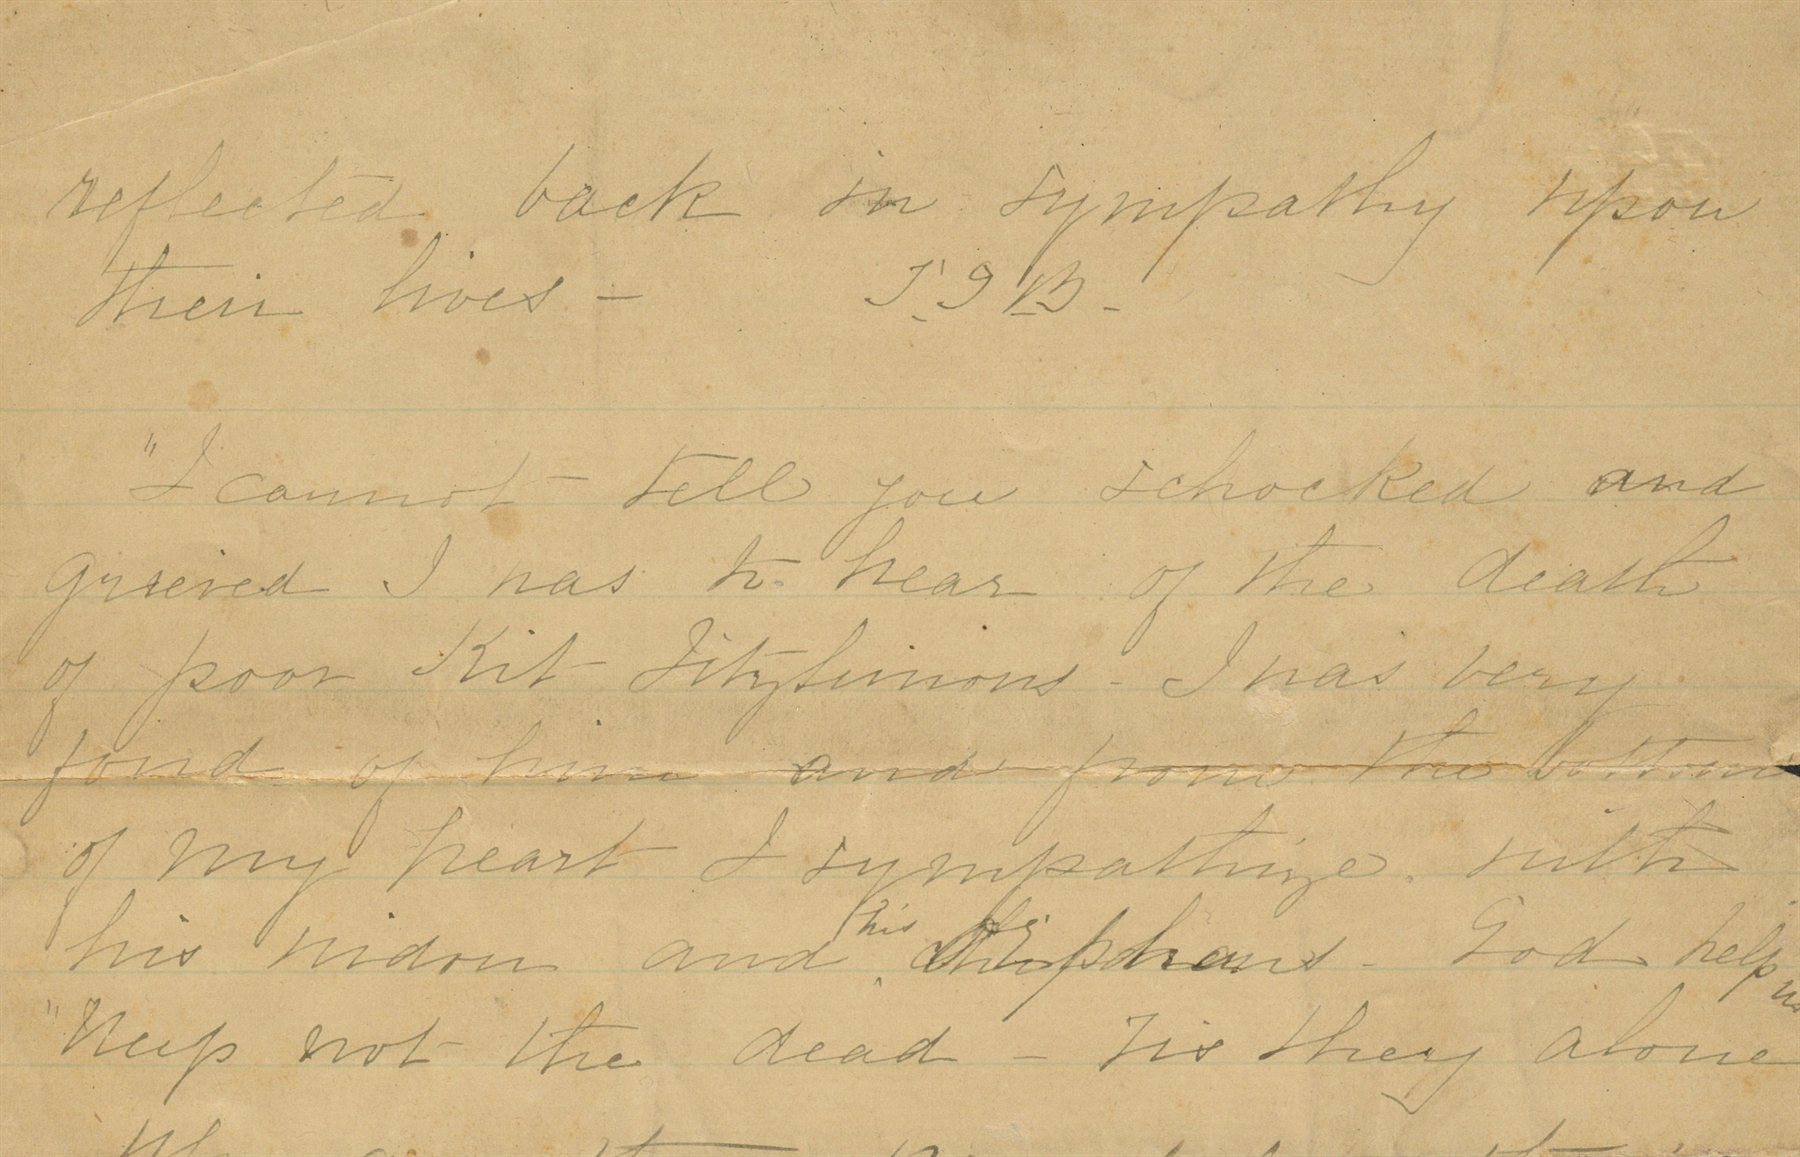 reflected back in sympathy upon
their lives –
"I cannot tell you schocked and
grieved I was to hear of the death
of poor Kit Fitzsimons – I was very
fond of him and from the bottom
of my heart I sympathize with
his widow and his orphans – God help us
"Weep not the dead – Tis they alone